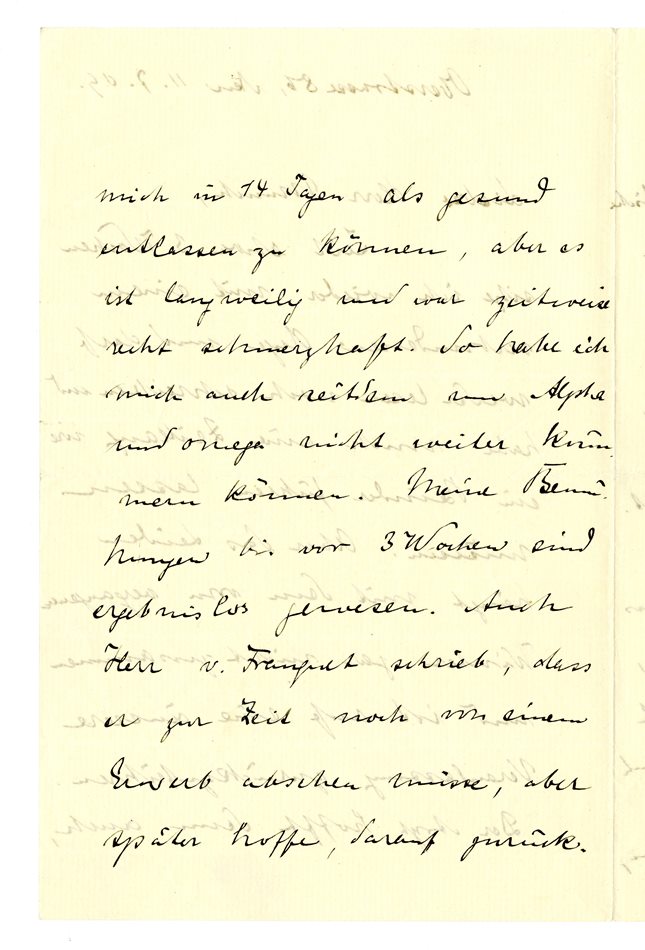 mich in 14 Tagen als gesund
entlassen zu können, aber es
ist langweilig und war zeitweise
recht schmerzhaft. So habe ich
mich auch seitdem um Alpha
und omega nicht weiter küm-
mern können. Meine Bemü-
hungen bis vor 3 Wochen sind
ergebnislos gewesen. Auch
Herr v. schrieb, dass
er zur Zeit noch von einem
Erwerb absehen müsse, aber
später hoffe, darauf zurück-